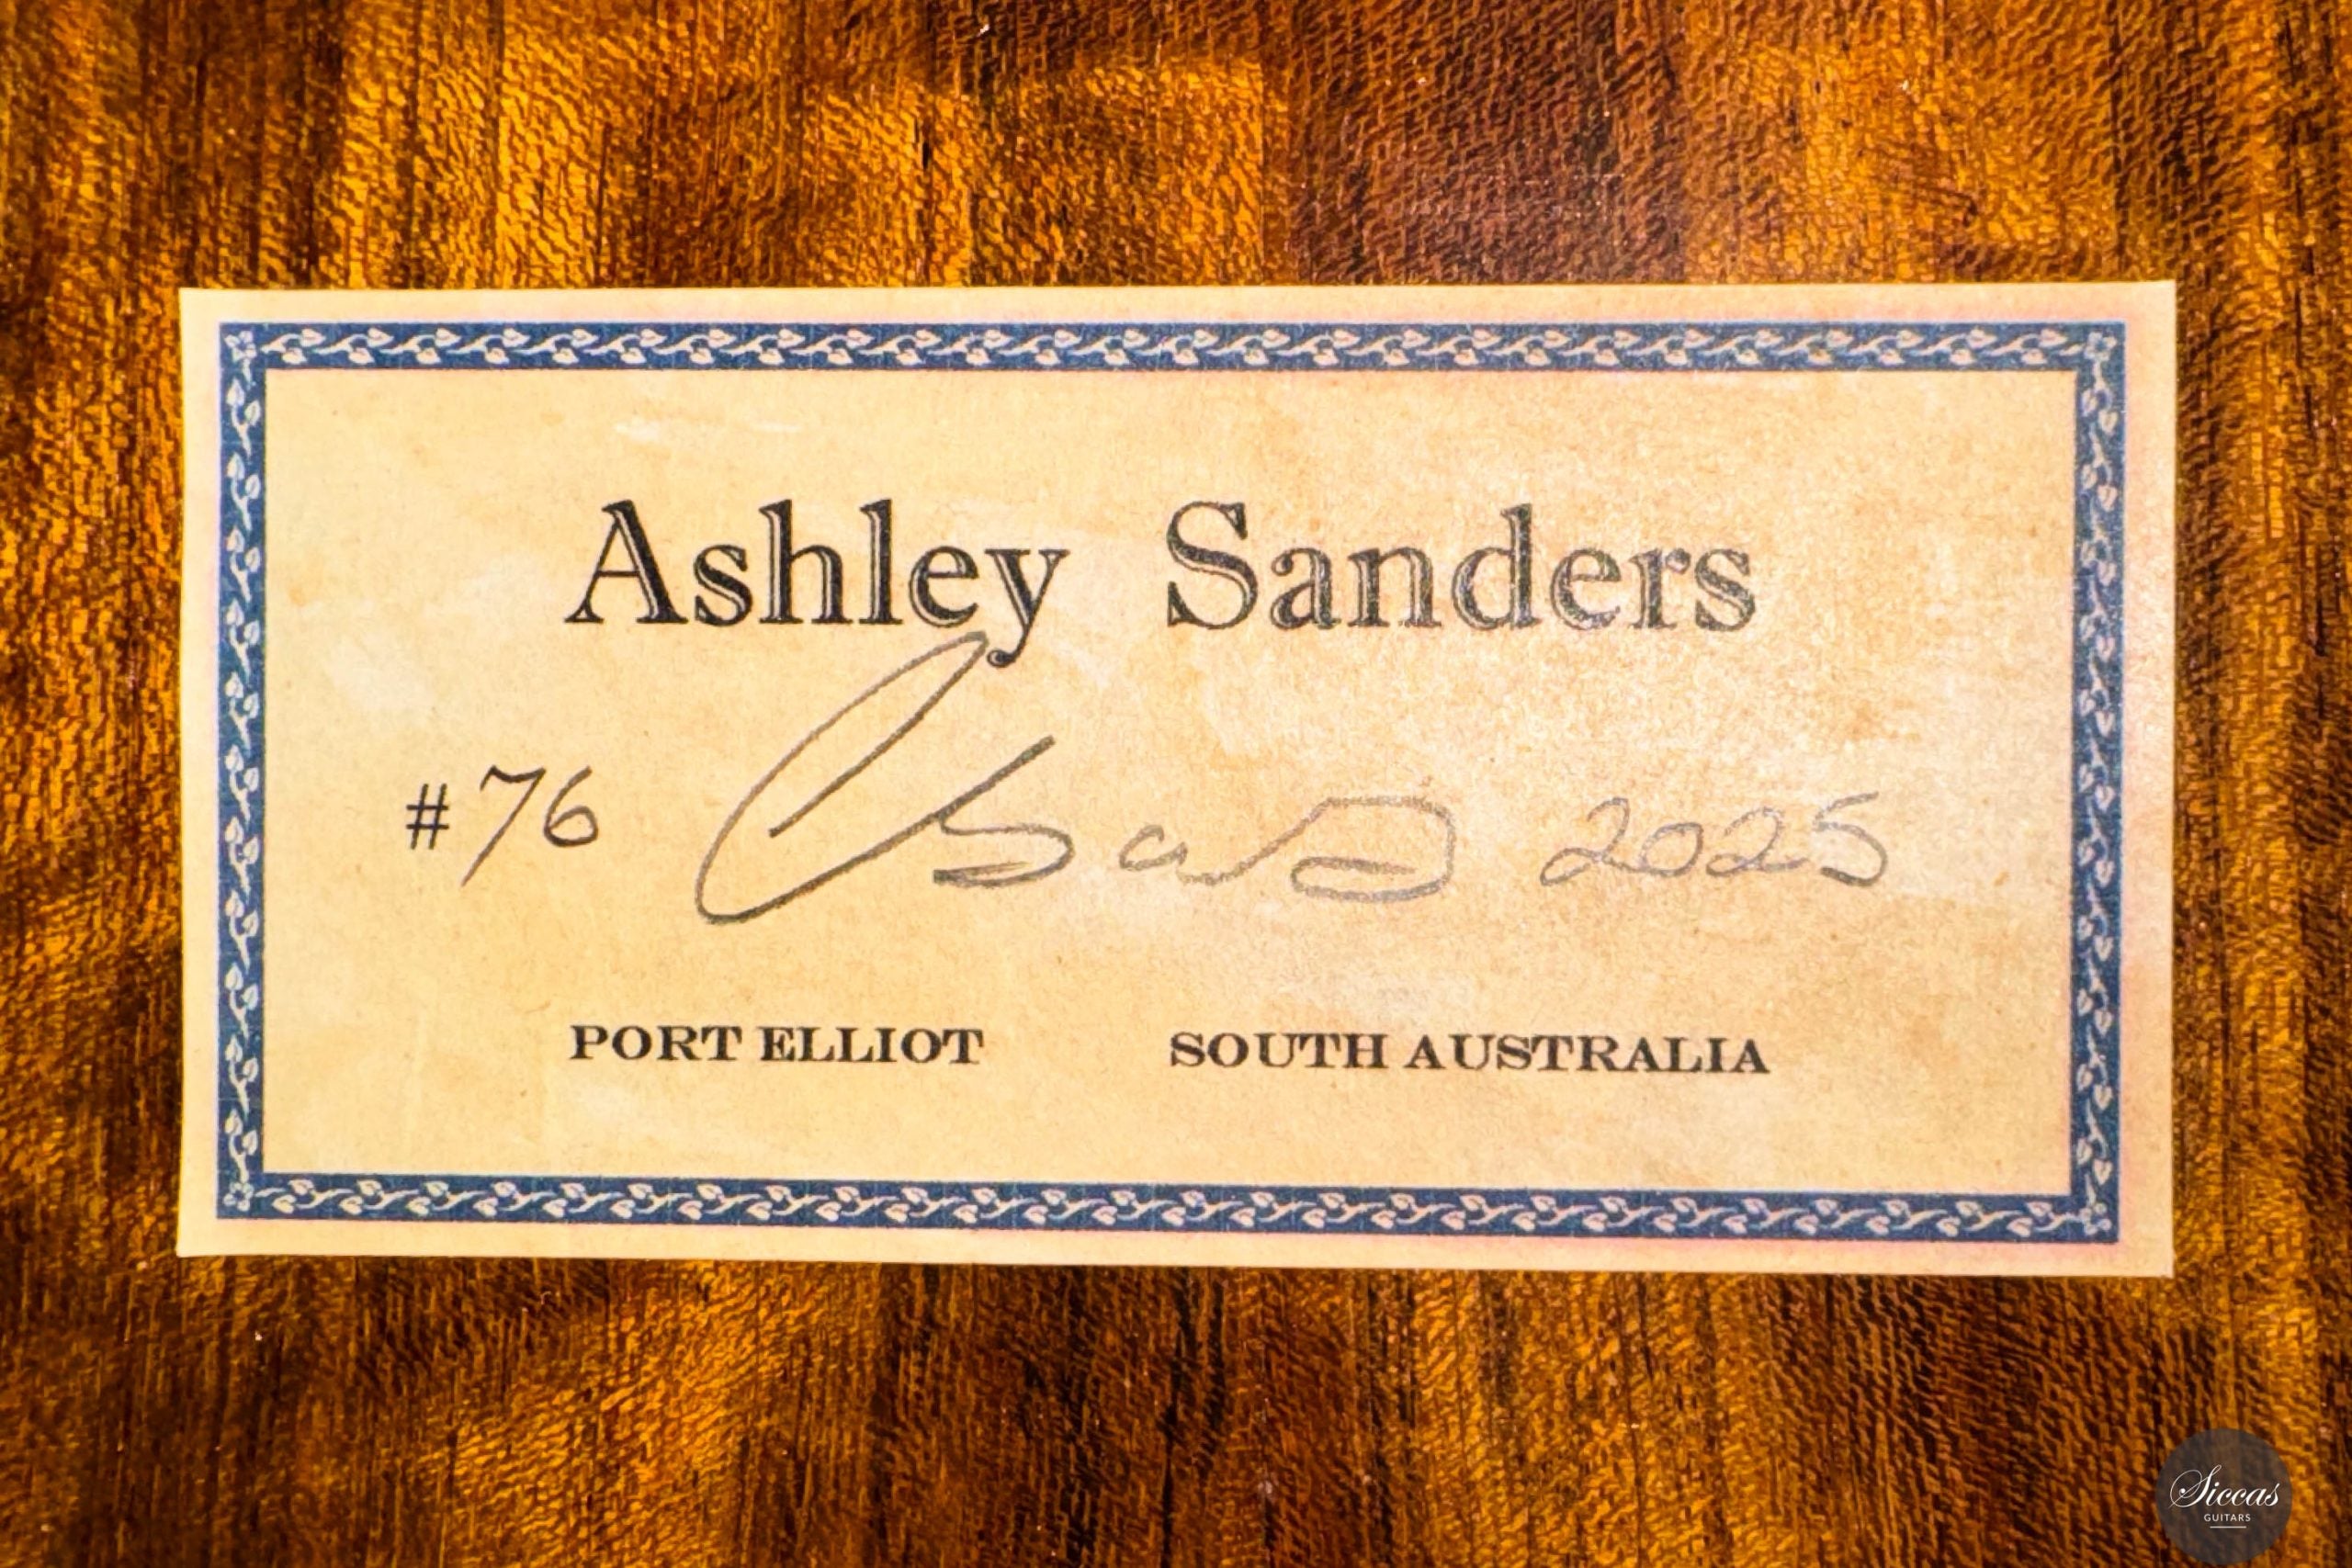 Ashley Sanders
#76 2025
PORT ELLIOT SOUTH AUSTRALIA
Siccas
GUITARS